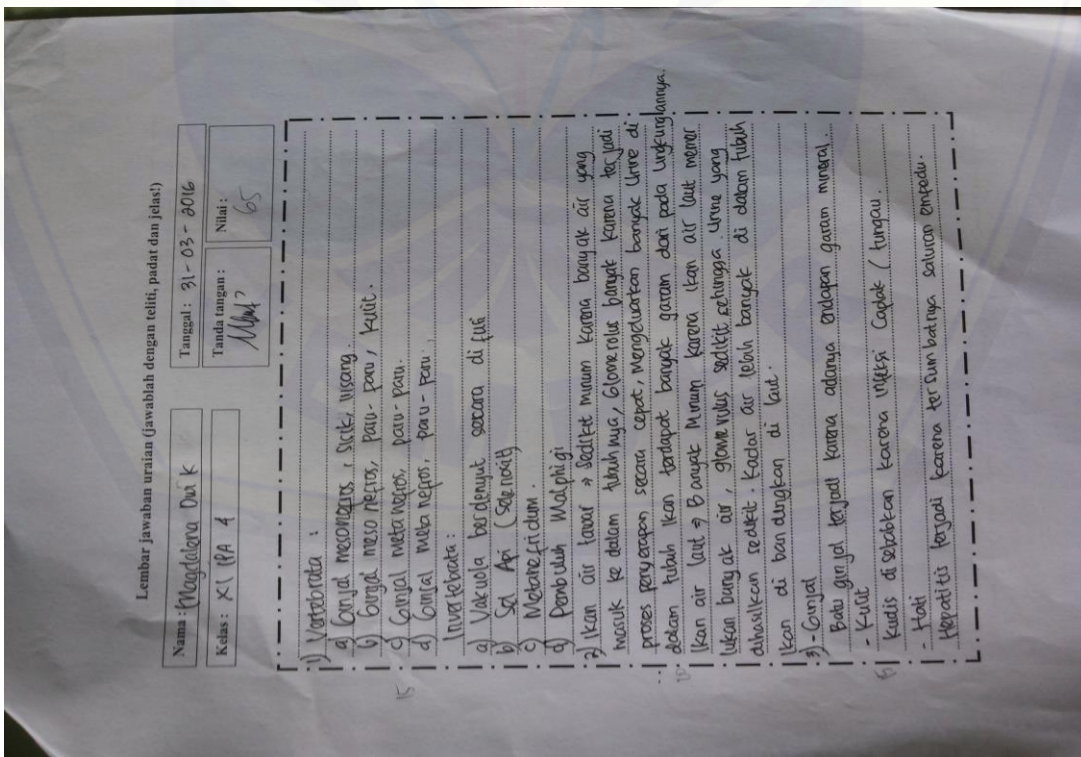 Lembar jawaban uraian (jawablah dengan teliti, padat dan jelas!)
Nama : Magdalena Dwi K
Tanggal : 31 - 03 - 2016
Kelas : XI IPA 4
Tanda tangan :
Nilai :
65
1) Vertebrata :
a) Ginjal mesonefros, sisik, insang.
b) Ginjal meso nefros, paru - paru, kulit.
c) Ginjal metanefros, paru - paru.
d) Ginjal meta nefros, paru - paru.
15
Invertebrata :
a) Vakuola berdenyut secara difusi
b) Sel Api (Solenosit)
c) Metanefridium.
d) Pembuluh Malphigi
2) Ikan air tawar → sedikit minum karena banyak air yang
masuk ke dalam tubuhnya, Glomerolus banyak karena terjadi
proses penyerapan secara cepat, Mengeluarkan banyak Urine di
dalam tubuh Ikan terdapat banyak garam dari pada lingkungannya.
Ikan air laut → Banyak Minum karena ikan air laut memer
lukan banyak air, glomerulus sedikit sehingga Urine yang
dihasilkan sedikit. Kadar air lebih banyak di dalam tubuh
Ikan di bandingkan di laut.
3) - Ginjal
Batu ginjal terjadi karena adanya endapan garam mineral.
- Kulit
Kudis disebabkan karena infeksi Caplak (tungau.
- Hati
Hepatitis terjadi karena tersumbatnya saluran empedu.